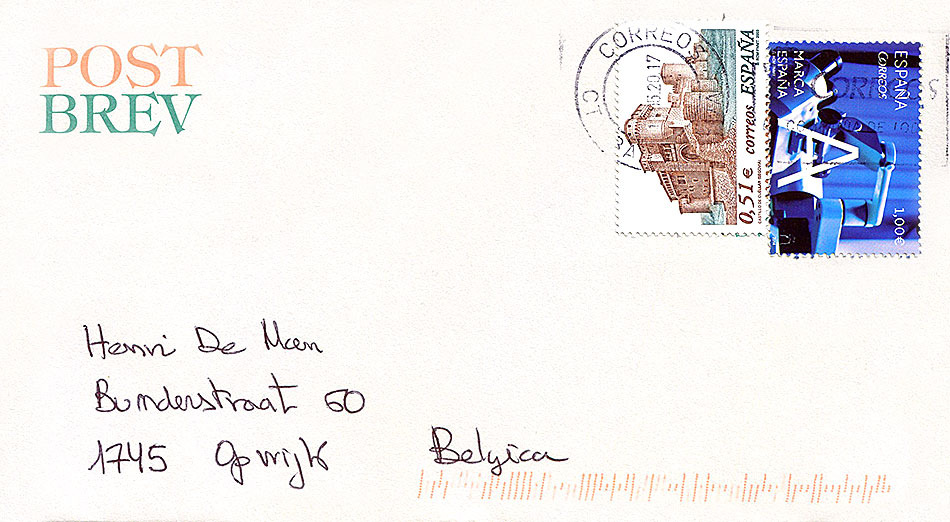 POST
BREV
CORREOS
ESPAÑA
correos
0,51 €
CASTILLO DE CUÉLLAR SEGOVIA
ESPAÑA
CORREOS
MARCA
ESPAÑA
1,00€
Henri De Man
Bunderstraat 60
1745 Opwijk Belgica